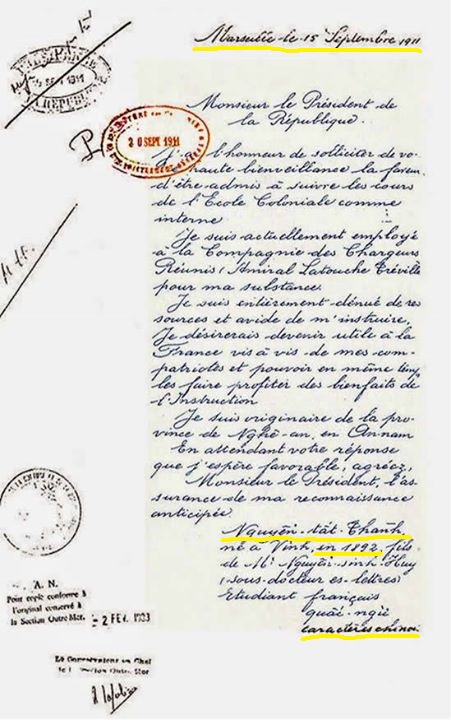 Marseille le 15 Septembre 1911
Monsieur le Président de
la République.
20 SEPT 1911
l'honneur de solliciter de vo-
haute bienveillance la faveur
d'être admis à suivre les cours
de l'Ecole Coloniale comme
interne
Je suis actuellement employé
à la Compagnie des Chargeurs
Réunis (Amiral Latouche Tréville
pour ma substance.
Je suis entièrement dénué de res
sources et avide de m'instruire.
Je désirerais devenir utile à la
France vis à vis de mes com-
patriotes et pouvoir en même temps
les faire profiter des bienfaits de
l'Instruction
Je suis originaire de la pro-
vince de Nghê-an, en Annam
En attendant votre réponse
que j'espère favorable, agréez,
Monsieur le Président, l'as
surance de ma reconnaissance
anticipée
Nguyên-tât-Thanh,
né à Vinh, en 1892, fils
de Mr Nguyên-sinh-Huy
(sous-docteur es-lettres)
Etudiant français
quôc-ngu
caractères chinois
A. N.
Pour copie conforme à
l'original conservé à
la Section Outre Mer.
- 2 FEV.
Le Conservateur en Chef
de la Section Outre Mer